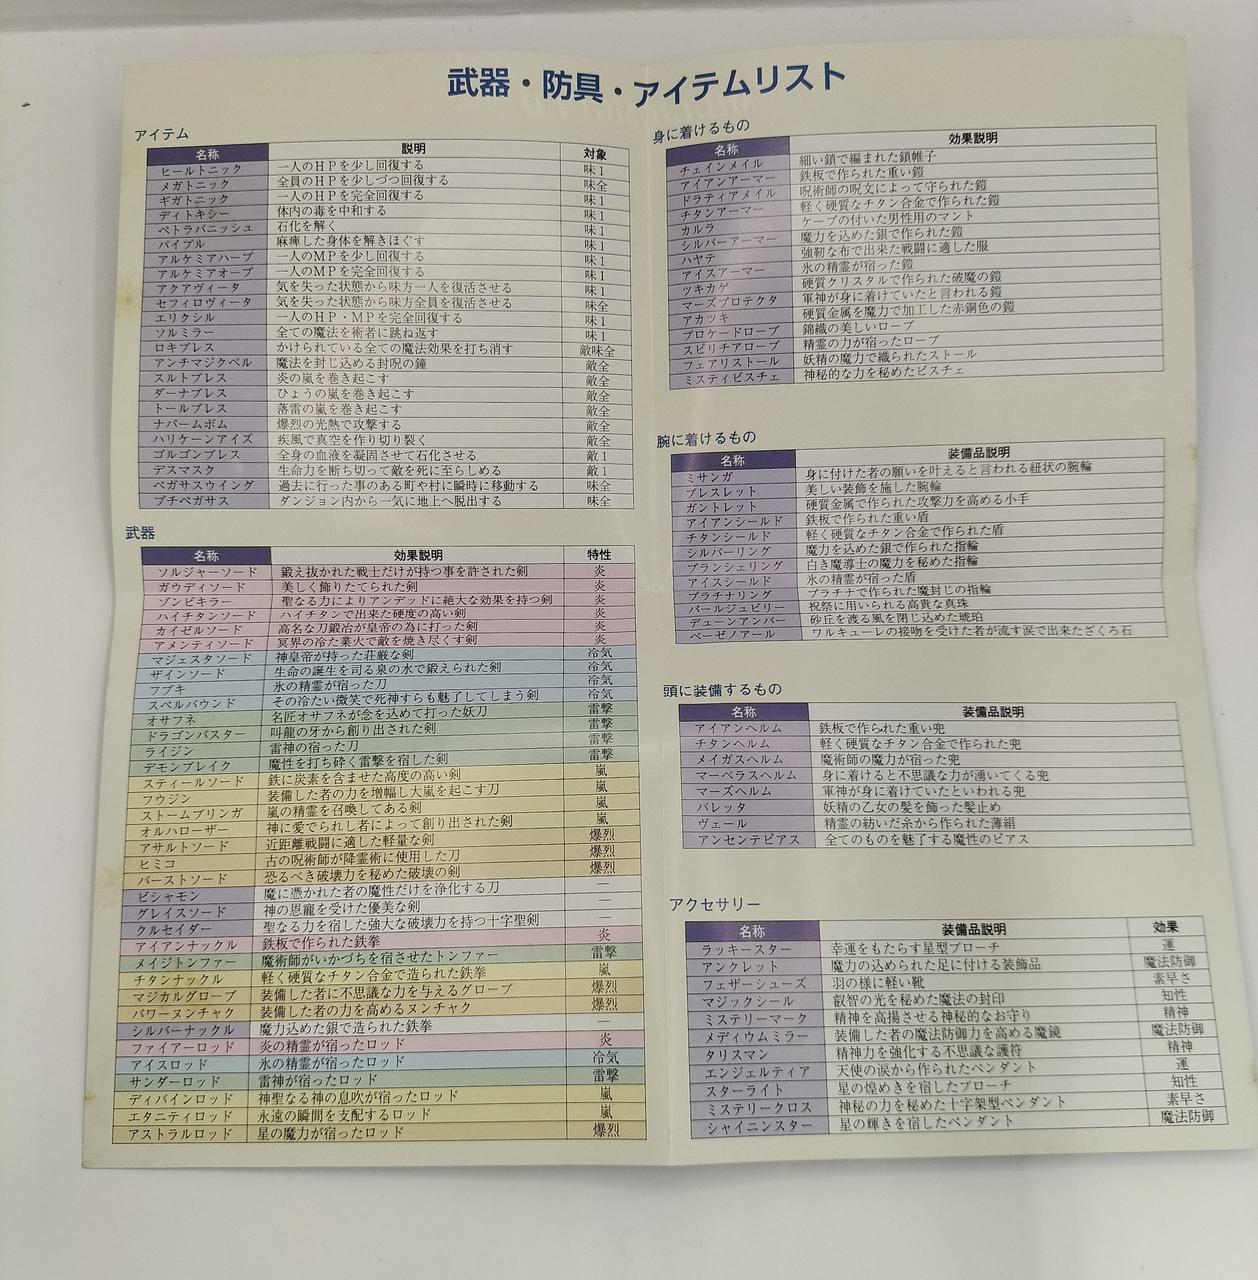 武器・防具・アイテムリスト
アイテム
名称 説明 対象
ヒールトニック 一人のＨＰを少し回復する 味1
メガトニック 全員のＨＰを少しづつ回復する 味全
ギガトニック 一人のＨＰを完全回復する 味1
ディトキシー 体内の毒を中和する 味1
ペトラバニッシュ 石化を解く 味1
パイプル 麻痺した身体を解きほぐす 味1
アルケミアハーブ 一人のＭＰを少し回復する 味1
アルケミアオーブ 一人のＭＰを完全回復する 味1
アクアヴィータ 気を失った状態から味方一人を復活させる 味1
セフィロヴィータ 気を失った状態から味方全員を復活させる 味全
エリクシル 一人のＨＰ・ＭＰを完全回復する 味1
ソルミラー 全ての魔法を術者に跳ね返す 味1
ロキブレス かけられている全ての魔法効果を打ち消す 敵味全
アンチマジクベル 魔法を封じ込める封呪の鐘 敵全
スルトブレス 炎の嵐を巻き起こす 敵全
ダーナブレス ひょうの嵐を巻き起こす 敵全
トールブレス 落雷の嵐を巻き起こす 敵全
ナパームボム 爆烈の光熱で攻撃する 敵全
ハリケーンアイズ 疾風で真空を作り切り裂く 敵全
ゴルゴンブレス 全身の血液を凝固させて石化させる 敵1
デスマスク 生命力を断ち切って敵を死に至らしめる 敵1
ペガサスウイング 過去に行った事のある町や村に瞬時に移動する 味全
プチペガサス ダンジョン内から一気に地上へ脱出する 味全
武器
名称 効果説明 特性
ソルジャーソード 鍛え抜かれた戦士だけが持つ事を許された剣 炎
ガウディソード 美しく飾りたてられた剣 炎
ゾンビキラー 聖なる力によりアンデッドに絶大な効果を持つ剣 炎
ハイチタンソード ハイチタンで出来た硬度の高い剣 炎
カイゼルソード 高名な刀鍛冶が皇帝の為に打った剣 炎
アメンティソード 冥界の冷た業火で敵を焼き尽くす剣 炎
マジェスタソード 神皇帝が持った荘厳な剣 冷気
ザインソード 生命の誕生を司る泉の水で鍛えられた剣 冷気
フブキ 氷の精霊が宿った刀 冷気
スペルバウンド その冷たい微笑で死神すらも魅了してしまう剣 冷気
オサフネ 名匠オサフネが念を込めて打った妖刀 雷撃
ドラゴンバスター 叫龍の牙から創り出された剣 雷撃
ライジン 雷神の宿った刀 雷撃
デモンブレイク 魔性を打ち砕く雷撃を宿した剣 雷撃
スティールソード 鉄に炭素を含ませた高度の高い剣 嵐
フウジン 装備した者の力を増幅し大嵐を起こす刀 嵐
ストームブリンガ 嵐の精霊を召喚してある剣 嵐
オルハローザー 神に愛でられし者によって創り出された剣 嵐
アサルトソード 近距離戦闘に適した軽量な剣 爆烈
ヒミコ 古の呪術師が降霊術に使用した刀 爆烈
バーストソード 恐るべき破壊力を秘めた破壊の剣 爆烈
ビシャモン 魔に憑かれた者の魔性だけを浄化する刀 ―
グレイスソード 神の恩寵を受けた優美な剣 ―
クルセイダー 聖なる力を宿した強大な破壊力を持つ十字聖剣 ―
アイアンナックル 鉄板で作られた鉄拳 炎
メイジトンファー 魔術師がいかづちを宿させたトンファー 雷撃
チタンナックル 軽く硬質なチタン合金で造られた鉄拳 嵐
マジカルグローブ 装備した者に不思議な力を与えるグローブ 爆烈
パワーヌンチャク 装備した者の力を高めるヌンチャク 爆烈
シルバーナックル 魔力込めた銀で造られた鉄拳 ―
ファイアーロッド 炎の精霊が宿ったロッド 炎
アイスロッド 氷の精霊が宿ったロッド 冷気
サンダーロッド 雷神が宿ったロッド 雷撃
ディバインロッド 神聖なる神の息吹が宿ったロッド 嵐
エタニティロッド 永遠の瞬間を支配するロッド 嵐
アストラルロッド 星の魔力が宿ったロッド 爆烈
身に着けるもの
名称 効果説明
チェインメイル 細い鎖で編まれた鎖帷子
アイアンアーマー 鉄板で作られた重い鎧
ドラティアメイル 呪術師の呪文によって守られた鎧
チタンアーマー 軽く硬質なチタン合金で作られた鎧
カルラ ケープの付いた男性用のマント
シルバーアーマー 魔力を込めた銀で作られた鎧
ハヤテ 強靭な布で出来た戦闘に適した服
アイスアーマー 氷の精霊が宿った鎧
ツキカゲ 硬質クリスタルで作られた破魔の鎧
マーズプロテクタ 軍神が身に着けていたと言われる鎧
アカツキ 硬質金属を魔力で加工した赤銅色の鎧
ブロケードローブ 錦織の美しいローブ
スピリチアローブ 精霊の力が宿ったローブ
フェアリストール 妖精の魔力で織られたストール
ミスティビスチェ 神秘的な力を秘めたビスチェ
腕に着けるもの
名称 装備品説明
ミサンガ 身に付けた者の願いを叶えると言われる紐状の腕輪
ブレスレット 美しい装飾を施した腕輪
ガントレット 硬質金属で作られた攻撃力を高める小手
アイアンシールド 鉄板で作られた重い盾
チタンシールド 軽く硬質なチタン合金で作られた盾
シルバーリング 魔力を込めた銀で作られた指輪
ブランシェリング 白き魔導士の魔力を秘めた指輪
アイスシールド 氷の精霊が宿った盾
プラチナリング プラチナで作られた魔封じの指輪
パールジュビリー 祝祭に用いられる高貴な真珠
デューンアンバー 砂丘を渡る風を閉じ込めた琥珀
ベーゼノアール ワルキューレの接吻を受けた者が流す涙で出来たざくろ石
頭に装備するもの
名称 装備品説明
アイアンヘルム 鉄板で作られた重い兜
チタンヘルム 軽く硬質なチタン合金で作られた兜
メイガスヘルム 魔術師の魔力が宿った兜
マーベラスヘルム 身に着けると不思議な力が湧いてくる兜
マーズヘルム 軍神が身に着けていたといわれる兜
バレッタ 妖精の乙女の髪を飾った髪止め
ヴェール 精霊の紡いだ糸から作られた薄絹
アンセンテピアス 全てのものを魅了する魔性のピアス
アクセサリー
名称 装備品説明 効果
ラッキースター 幸運をもたらす星型ブローチ 運
アンクレット 魔力の込められた足に付ける装飾品 魔法防御
フェザーシューズ 羽の様に軽い靴 素早さ
マジックシール 叡智の光を秘めた魔法の封印 知性
ミステリーマーク 精神を高揚させる神秘的なお守り 精神
メディウムミラー 装備した者の魔法防御力を高める魔鏡 魔法防御
タリスマン 精神力を強化する不思議な護符 精神
エンジェルティア 天使の涙から作られたペンダント 運
スターライト 星の煌めきを宿したブローチ 知性
ミステリークロス 神秘の力を秘めた十字架型ペンダント 素早さ
シャイニンスター 星の輝きを宿したペンダント 魔法防御